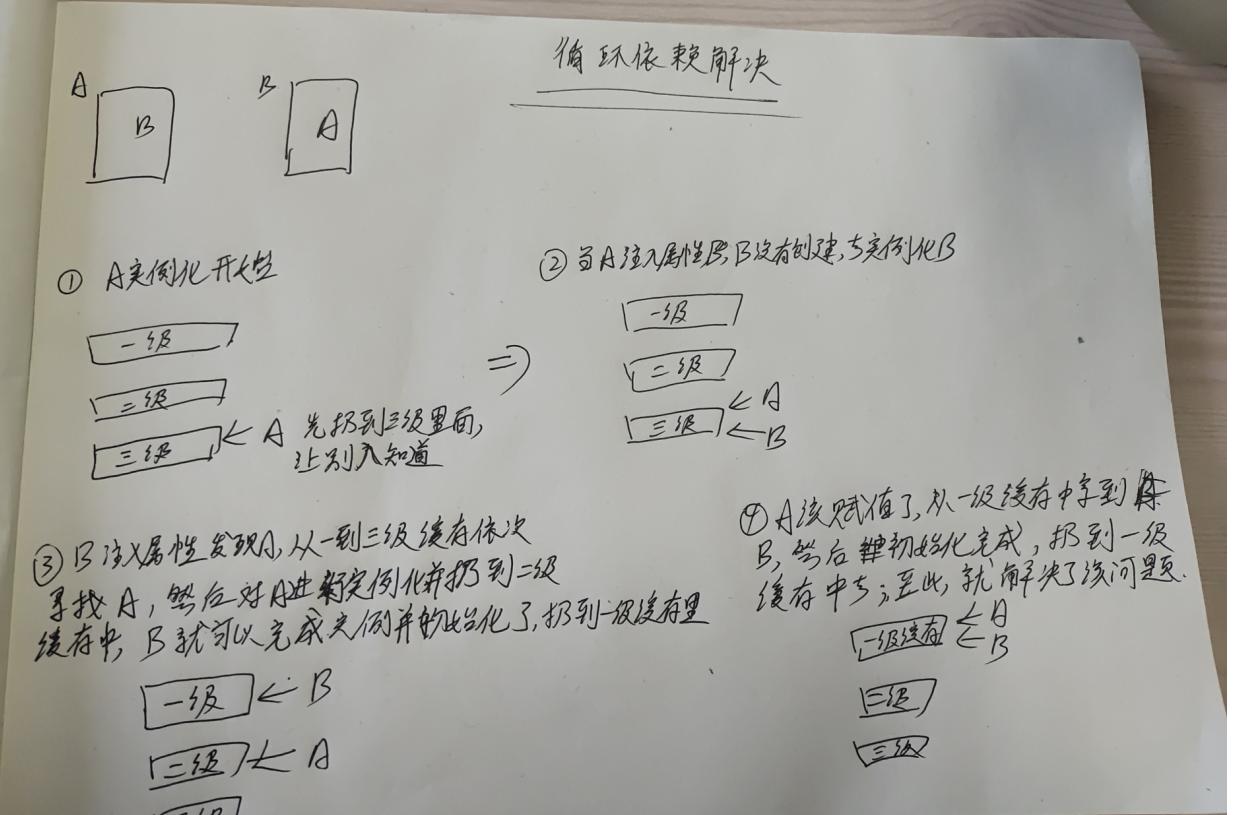 循环依赖解决
A
B
B
A
① A实例化开始
一级
二级
三级
← A 先扔到三级里面,
让别人知道
=>
② 当A注入属性B, B没有创建, 去实例化B
一级
二级
三级
← A
← B
③ B注入属性发现A, 从一到三级缓存依次
寻找A, 然后对A进行实例化并扔到二级
缓存中, B就可以完成实例并初始化了, 扔到一级缓存里
一级 ← B
二级 ← A
④ A该赋值了, 从一级缓存中拿到
B, 然后初始化完成, 扔到一级
缓存中去; 至此, 就解决了该问题.
一级缓存
← A
← B
二级
三级